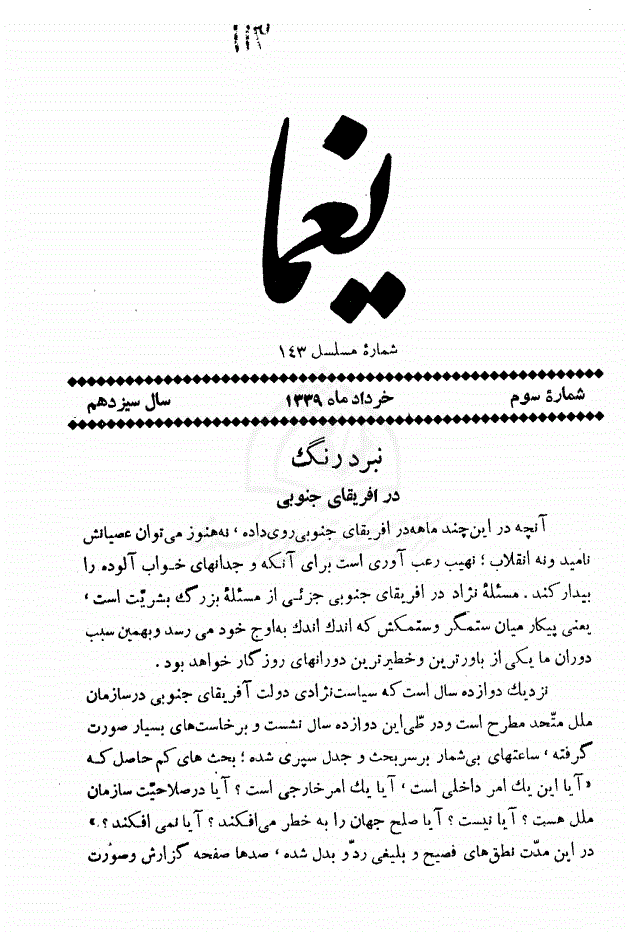 ۱۴۳
یغما
شمارهٔ مسلسل ۱۴۳
شمارهٔ سوم خرداد ماه ۱۳۳۹ سال سیزدهم
نبرد رنگ
در افریقای جنوبی
آنچه در این چند ماهه در افریقای جنوبی روی‌داده ، نه هنوز می‌توان عصیانش
نامید ونه انقلاب ؛ نهیب رعب آوری است برای آنکه وجدانهای خواب آلوده را
بیدار کند . مسئلهٔ نژاد در افریقای جنوبی جزئی از مسئلهٔ بزرگ بشریّت است ،
یعنی پیکار میان ستمگر وستمکش که اندك اندك به‌اوج خود می رسد وبهمین سبب
دوران ما یکی از باورترین وخطیرترین دورانهای روزگار خواهد بود .
نزدیك دوازده سال است که سیاست‌نژادی دولت آفریقای جنوبی درسازمان
ملل متّحد مطرح است ودر طّی‌این دوازده سال نشست و برخاست‌های بسیار صورت
گرفته ، ساعتهای بی‌شمار برسربحث و جدل سپری شده ؛ بحث های کم حاصل که
«آیا این یك امر داخلی است ، آیا یك امرخارجی است ؟ آیا درصلاحیّت سازمان
ملل هست ؟ آیا نیست ؟ آیا صلح جهان را به خطر می‌افکند ؟ آیا نمی افکند ؟.»
در این مدّت نطق‌های فصیح و بلیغی ردّو بدل شده ، صدها صفحه گزارش وصورت